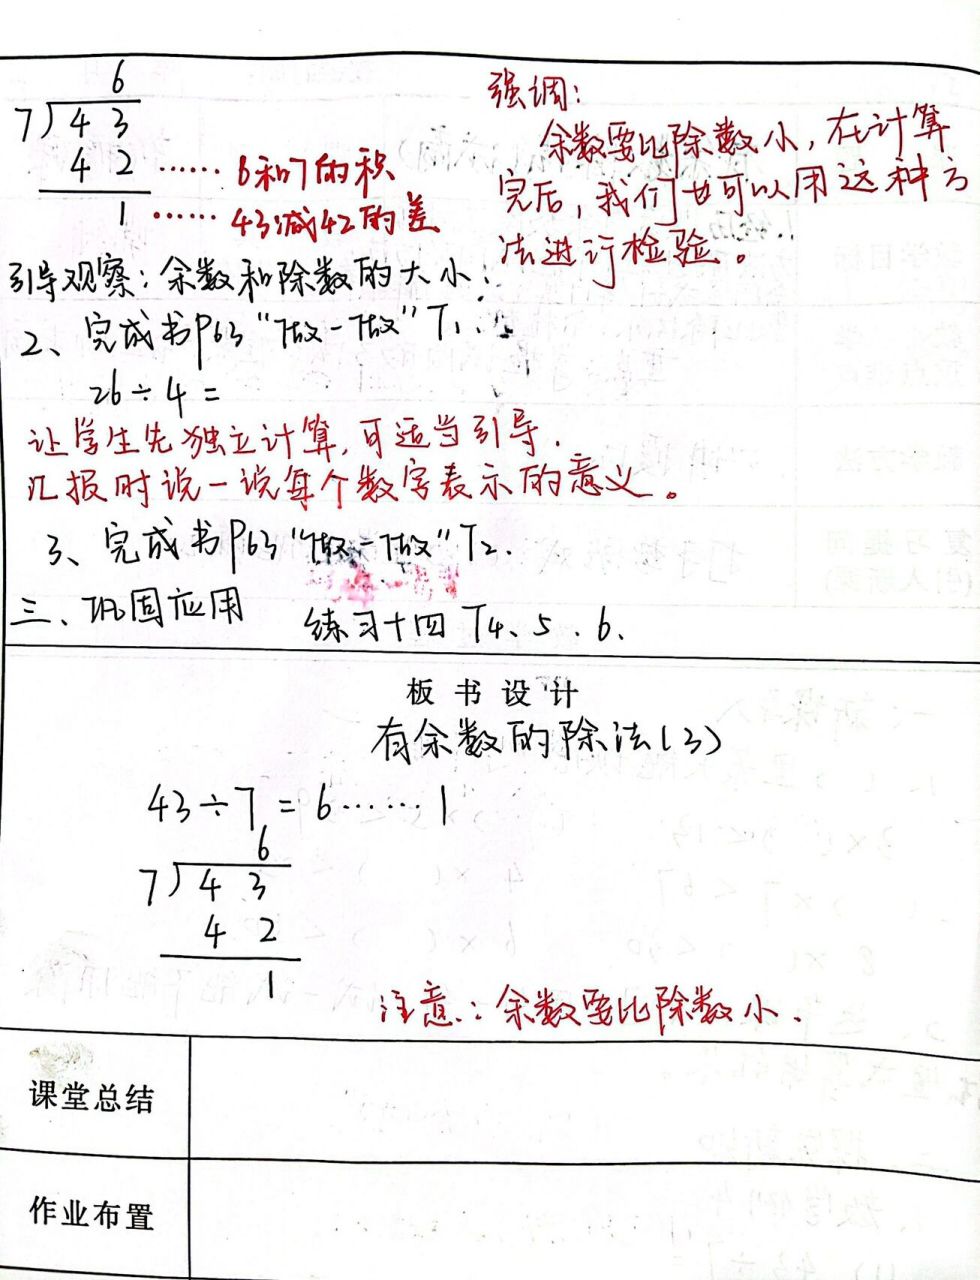 6
7)43
42……6和7的积
1……43减42的差
强调:
余数要比除数小,在计算
完后,我们也可以用这种方
法进行检验。
引导观察:余数和除数的大小:
2、完成书P63“做一做”T1.
26÷4=
让学生先独立计算,可适当引导.
汇报时说一说每个数字表示的意义。
3、完成书P63“做一做”T2.
三、巩固应用
练习十四 T4、5、6、
板书设计
有余数的除法(3)
43÷7=6……1
6
7)43
42
1
注意:余数要比除数小.
课堂总结
作业布置